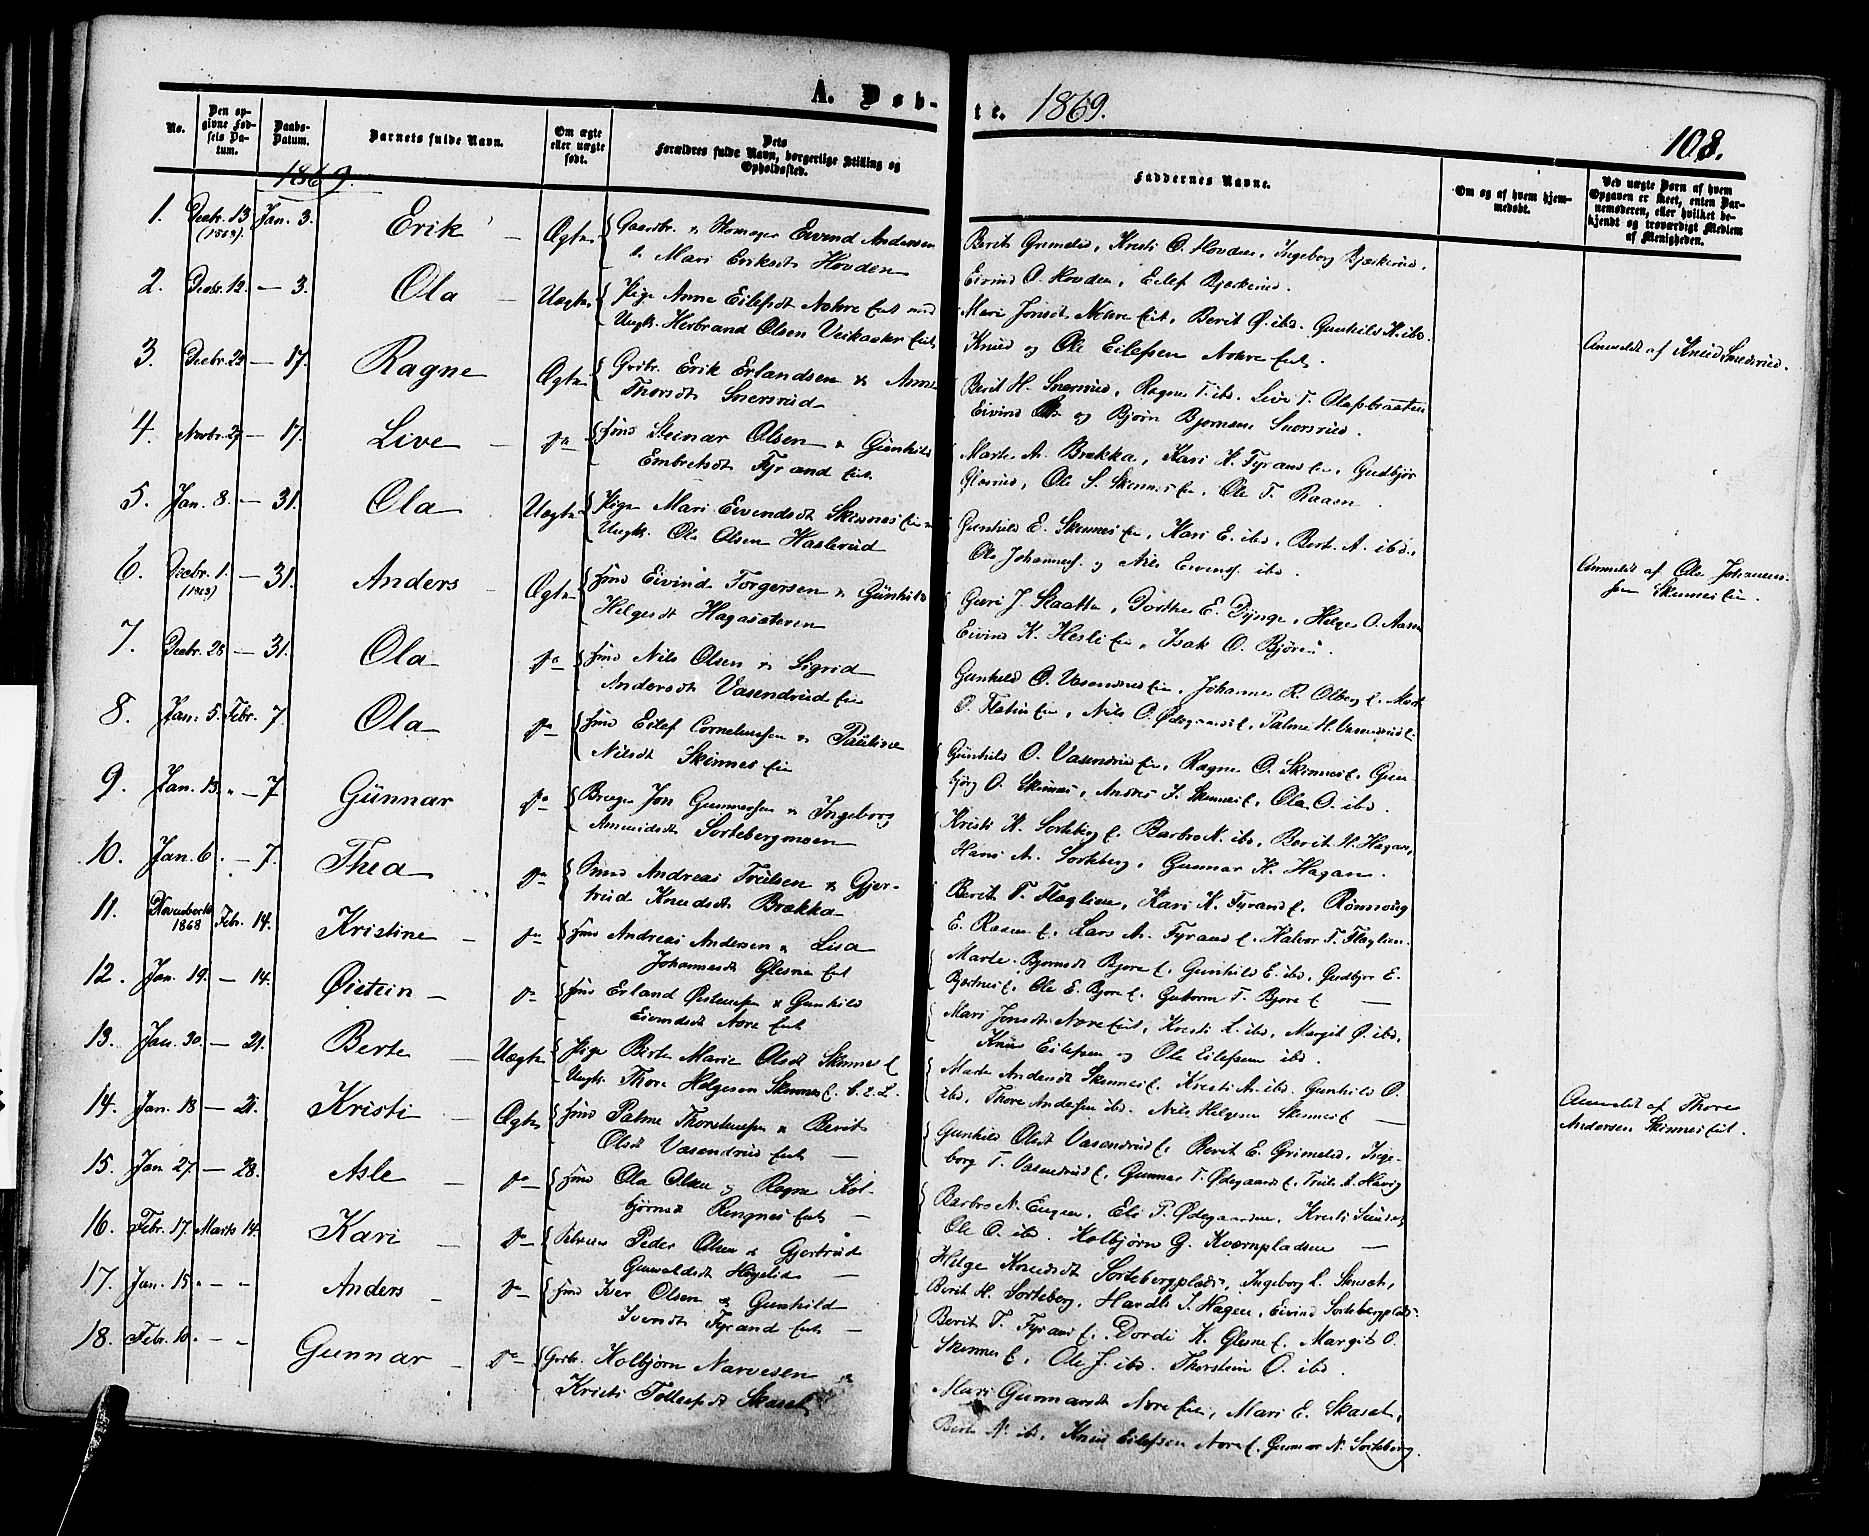 A. Døb-
te. 1869.
108.
No.
Den op-
givne Fød-
sels Da-
tum.
Daabs-
Datum.
Barnets fulde Navn.
Om ægte
eller uægte
født.
Dets
Forældres fulde Navn, borgerlige Stilling og
Opholdssted.
Faddernes Navne.
Om og af hvem hjem-
medøbt.
Ved uægte Børn af hvem
Opgaven er skeet, enten Bar-
nemoderen, eller hvilket be-
kjendt og troværdigt Medlem
af Menigheden.
1869.
1. Decbr. 13 (1868). Jan. 3. Erik Ægte Gaardbr. Eivind Andersen
Mari Eriksdt Hovden
Berit Grimelid, Kristi O. Hovden, Ingeborg Bjerkerud,
Eivind O. Hovden, Eilef Bjerkerud.
2. Decbr. 12. — 3. Ola Uægte Pige Anne Eilefsdt Nohre Eiet med
Ungk. Herbrand Olsen Veikaaker Eiet
Mari Jonsdt Nohre Eiet, Berit Ø. ibd. Gunhild H. ibd.
Knud og Ole Eilefsen Nohre Eiet.
Anmeldt af Knud Smedsrud.
3. Decbr. 29 — 17. Ragne Ægte Grdbr. Erik Erlandsen & Anne
Thorsdt Snersrud
Berit H. Snersrud, Ragne T. ibd. Live T. Olafsbraaten
Eivind og Bjørn Bjørnsen Snersrud.
4. Novbr. 29 — 17. Live do Hmd Steinar Olsen & Gunhild
Embretsdt Fyrand Eiet.
Marte A. Brekka, Kari K. Fyrand Eie, Gudbjør
Glesne, Ole S. Skinnes Eie, Ole T. Raaen.
5. Jan. 8. — 31. Ola Uægte Pige Mari Eivendsdt Skinnes Eie
Ungk. Ole Olsen Haslerud
Gunhild E. Skinnes Eie, Kari E. ibd, Berit A. ibd,
Ole Johannesf. og Nils Evensf. ibd.
Anmeldt af Ole Johannes-
sen Skinnes Eie.
6. Decbr. 1. (1868) — 31. Anders Ægte Hmd Eivind Torgersen & Günhild
Helgesdt Hagasæteren
Guri J. Skaatta, Dorthe E. Dynge, Helge O. Aasen
Eivind K. Hesli Eie, Isak O. Bjøre.
7. Decbr. 28 — 31. Ola do Hmd Nils Olsen & Sigrid
Andersdt Vasendrud Eie
Gunhild O. Vasendrud Eie, Johannes R. Olberg E. Marte
O. Flatin Eie, Nils O. Ødegaards E, Palme H. Vasendrud E.
8. Jan. 5. Febr. 7. Ola do Hmd Eilef Corneliussen & Pauline
Nilsdt Skinnes Eie
Günhild O. Vasendrud Eie, Ragne O. Skinnes E, Gun-
bjørg O. Skinnes, Anders S. Skinnes E, Ola O. ibd.
9. Jan. 13. " — 7 Günnar do Jon Gunnersen & Ingeborg
Amundsdt Sortebergmoen
Kristi N. Sorteberg E. Barbro N. ibd, Berit H. Hagan,
Hans A. Sorteberg, Gunnar H. Hagan.
10. Jan. 6. — 7. Thea do Smed Andreas Truelsen & Gjer-
trud Knudsdt Brækka
Berit T. Flaglien, Kari K. Fyrand E, Rønnoug
E. Raaen E. Lars A. Fyrand E. Halvor T. Flaglien.
11. November 1868 Febr. 14. Kristine do Hmd Andreas Andersen & Lisa
Johannesdt Glesne Eiet
Marte Bjørnsdt Bjøre E, Gunhild E. ibd, Gudbjør E.
Bjertnes E, Ole E. Bjøre E. Guttorm T. Bjøre E —
12. Jan. 19. — 14. Øistein do Hmd Erland Østensen & Gunhild
Eivindsdt Nore Eiet
Mari Jonsdt Nore Eiet, Kristi L. ibd, Margit Ø. ibd,
Knud Eilefsen og Ole Eilefsen ibd.
13. Jan. 30. — 21. Berte Uægte Pige Birte Marie Olsdt Skinnes E
Ungk. Thore Helgesen Skinnes E.
Marte Andersdt Skinnes E, Kristi A. ibd, Gunhild O.
ibd, Thore Andersen ibd. Nils Helgesen Skinnes E —
Anmeldt af Thore
Andersen Skinnes Eiet.
14. Jan. 18 — 21. Kristi Ægte Hmd Palme Thorstensen & Berit
Olsdt Vasendrud Eiet
Gunhild Olsdt Vasendrud E, Berit E. Grimelid, Inge-
borg T. Vasendrud E, Gunnar T. Ødegaards E,
15. Jan 27 — 28. Asle do Hmd Ola Olsen og Ragne Kol-
bjørnsdt Ringnes Eiet
Barbro N. Engen, Eli P. Ødegaarden, Kristi
Ole O. ibd. Kolbjørn G. Kværnpladsen —
16. Febr. 17. Marts 14. Kari do Peder Olsen & Gjertrud
Gunvaldsdt Høgelid
Helge Knudsdt Sortebergplads, Ingeborg L. Skaset,
Berit H. Sorteberg, S. Hagen, Eivind Sortebergplads
17. Jan. 15. " — " Anders do Hmd Iver Olsen & Gunhild
Iversdt Fyrand Eiet —
Berit T. Fyrand E. Dordi K. Glesne E. Margit O.
Skinnes E, Ole J. ibd. Thorstein O. ibd.
18. Febr. 10. — " Gunnar do Grdbr. Kolbjørn Narvesen &
Kristi Tollefsdt Skaset
Mari Gunnarsdt Nore Eiet, Mari E. Skaset,
Berit N. ibd, Knud Eilefsen Nore E. Gunnar N. Sorteberg.